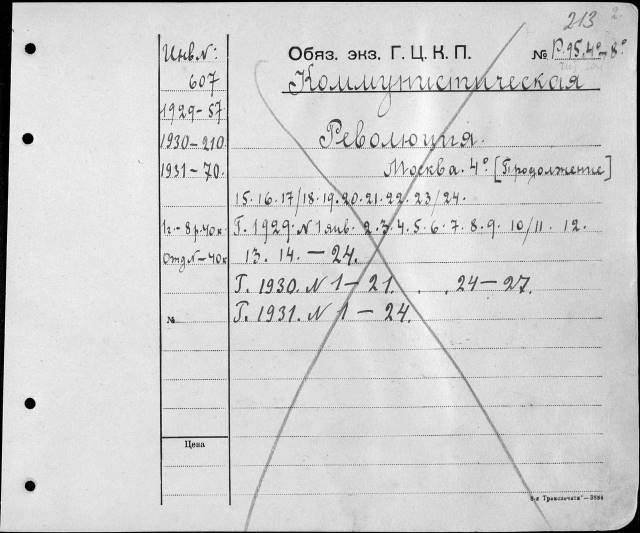 213 2.
Инв. N:
607
1929-57
1930-210.
1931-70.
1г.-8р.40к.
Отд. N-40к
№
Цена
Обяз. экз. Г. Ц. К. П. № Р.95.4°-8°
Коммунистическая
Революция.
Москва. 4° [Продолжение]
15.16.17/18.19.20.21.22.23/24.
Г. 1929. N 1 янв. 2.3.4.5.6.7.8.9.10/11. 12.
13. 14. — 24.
Г. 1930. N 1 — 21. . . 24 — 27.
Г. 1931. N 1 — 24.
"Транспечати"—3884